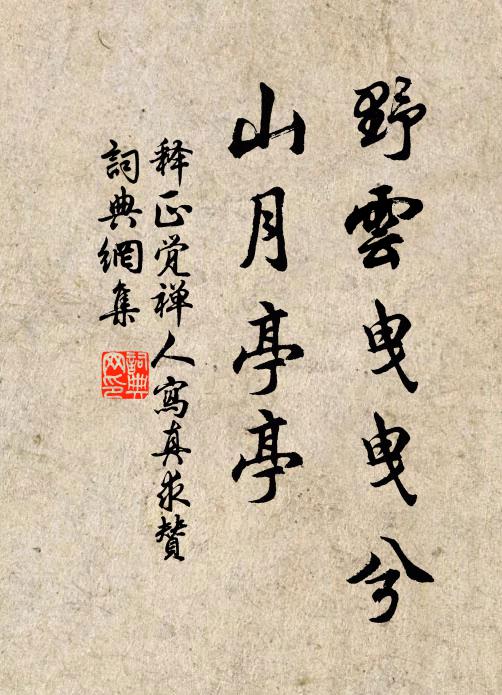 野雲曳曳兮
山月亭亭
釋正覚禅人寫真求賛
詞典網集
詞典網印